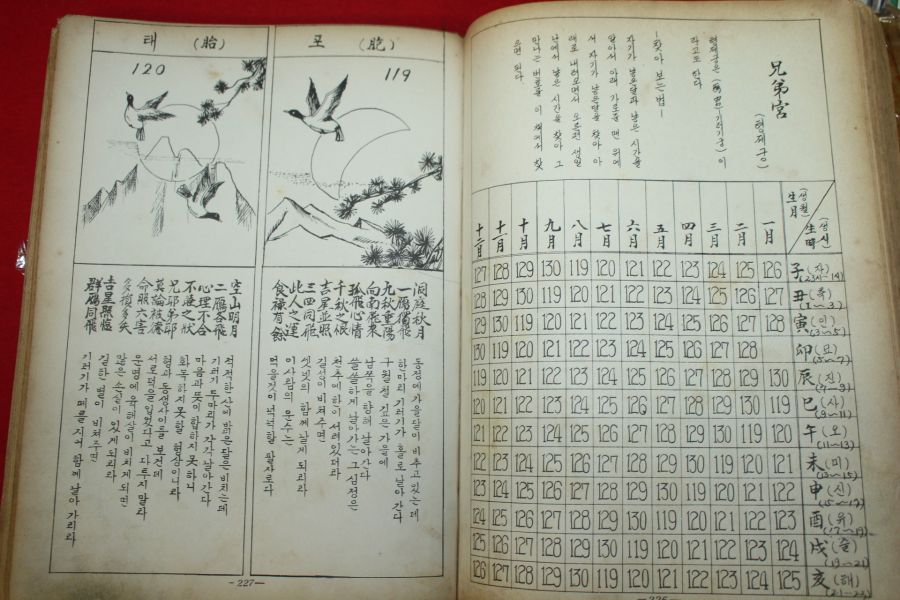 兄弟宮
(형제궁)
형제궁은 (鴈宮) (기러기궁) 이
라고도 한다
—찾아 보는법—
자기가 낳은달과 낳은 시간을
알아서 아래 가로줄 맨 위에
서 자기가 낳은달을 찾아 아
래로 내려오면서 오른편 생일
난에서 낳은 시간을 찾아 그
만나는 번호를 이 책에서 찾
으면 된다.
十二月 十一月 十月 九月 八月 七月 六月 五月 四月 三月 二月 一月 (생월) 生月 (생시) 生時
127 128 129 130 119 120 121 122 123 124 125 126 子 (자)
128 129 130 119 120 121 122 123 124 125 126 127 丑 (축) (1~3)
129 130 119 120 121 122 123 124 125 126 127 128 寅 (인) (3~5)
130 119 120 121 122 123 124 125 126 127 128 卯 (묘) (5~7)
119 120 121 122 123 124 125 126 127 128 129 130 辰 (진) (7~9)
120 121 122 123 124 125 126 127 128 129 130 119 巳 (사) (9~11)
121 122 123 124 125 126 127 128 129 130 119 120 午 (오) (11~13)
122 123 124 125 126 127 128 129 130 119 120 121 未 (미) (13~15)
123 124 125 126 127 128 129 130 119 120 121 122 申 (신) (15~17)
124 125 126 127 128 129 130 119 120 121 122 123 酉 (유) (17~19)
125 126 127 128 129 130 119 120 121 122 123 124 戌 (술) (19~21)
126 127 128 129 130 119 120 121 122 123 124 125 亥 (해) (21~23)
포 (胞)
119
洞庭秋月
一鴈獨飛
九秋重陽
向南飛來
孤飛心情
千秋之恨
吉星並照
三四同飛
此人之運
食祿有餘
동정에 가을달이 비추고 있는데
한마리 기러기가 홀로 날아 간다
구월철 깊은 가을에
남쪽을 향해 날아간다
쓸쓸하게 날아가는 그 심정은
천추에 한이 서려있더라
길성이 비쳐주면
셋넷이 함께 날게 되리라
이사람의 운수는
먹을것이 넉넉할 팔자로다
태 (胎)
120
空山明月
二鴈各飛
心理不合
不睦之狀
兄耶弟耶
莫論彼德
命照六害
多損多失
吉星照臨
群鴈同飛
적적한 산에 밝은 달은 비치는데
기러기 두마리가 각각 날아간다
마음과 뜻이 합하지 못하니
화목하지 못할 형상이니라
형과 동생사이를 보건데
서로 덕을 입었다고 다투지 말라
운명에 육해살이 비치게 되면
많은 손실이 있게 되리라
길한 별이 비쳐주면
기러기가 떼를 지어 함께 날아 가리라
-227-